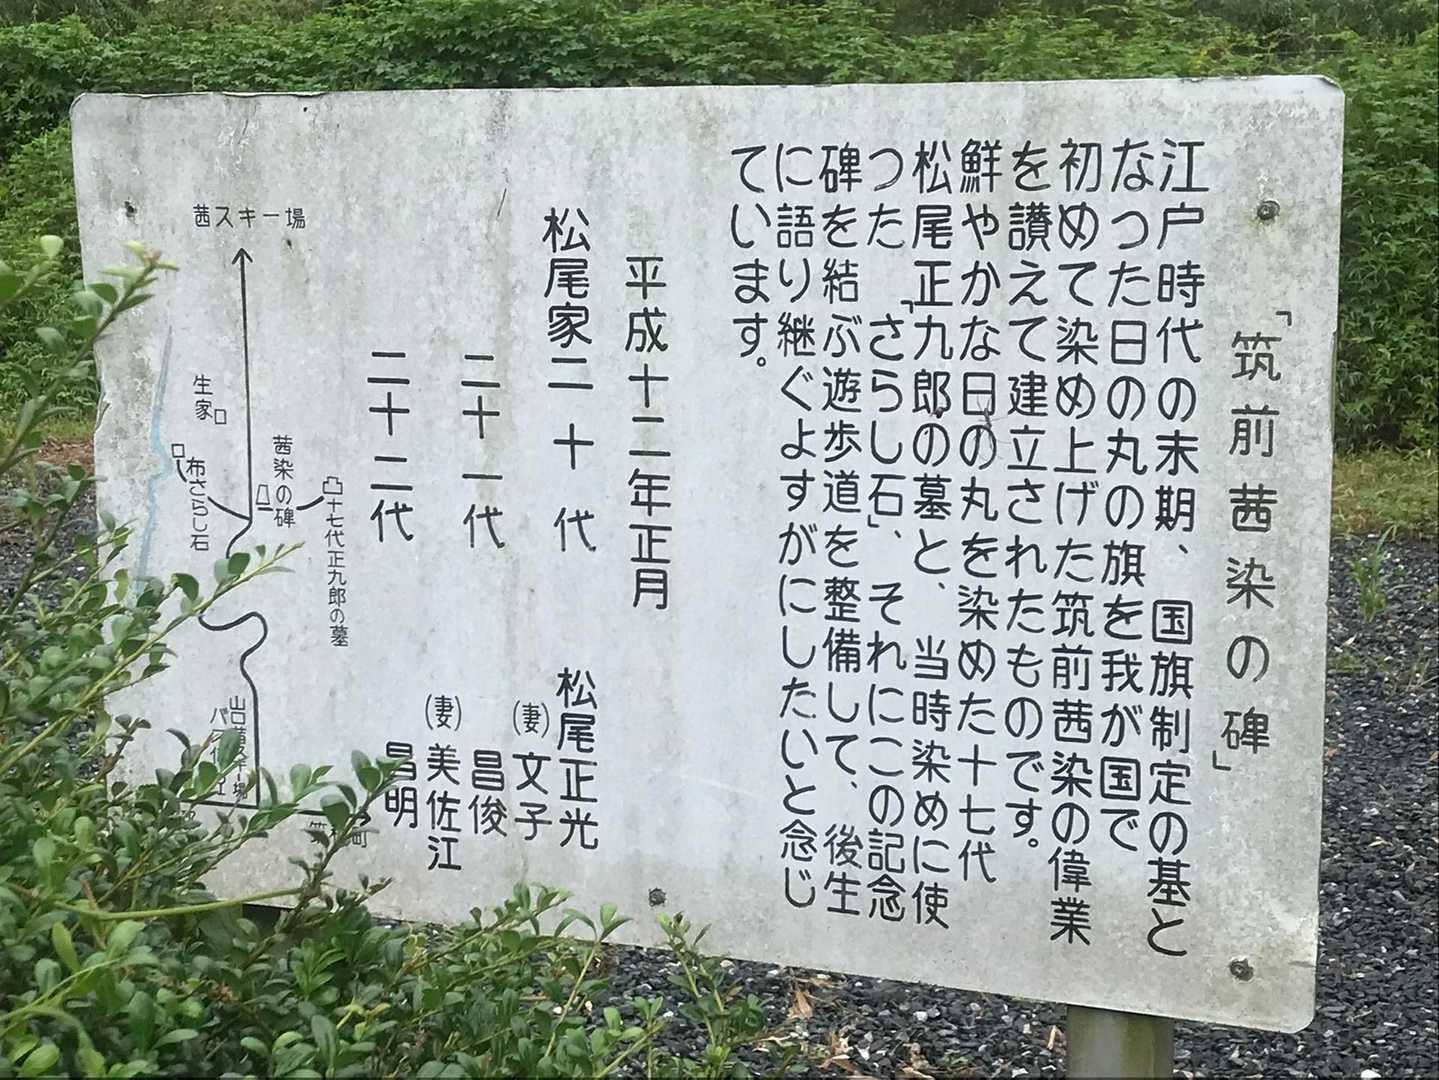 「筑前茜染の碑」
江戸時代の末期、国旗制定の基と
なった日の丸の旗を我が国で
初めて染め上げた筑前茜染の偉業
を讃えて建立されたものです。
鮮やかな日の丸を染めた十七代
松尾正九郎の墓と、当時染めに使
つた「さらし石」、それにこの記念
碑を結ぶ遊歩道を整備して、後生
に語り継ぐよすがにしたいと念じ
ています。
平成十二年正月
松尾家二十代 松尾正光
(妻)文子
二十一代 昌俊
(妻)美佐江
二十二代 昌明
茜スキー場
生家
布さらし石
茜染の碑
十七代正九郎の墓